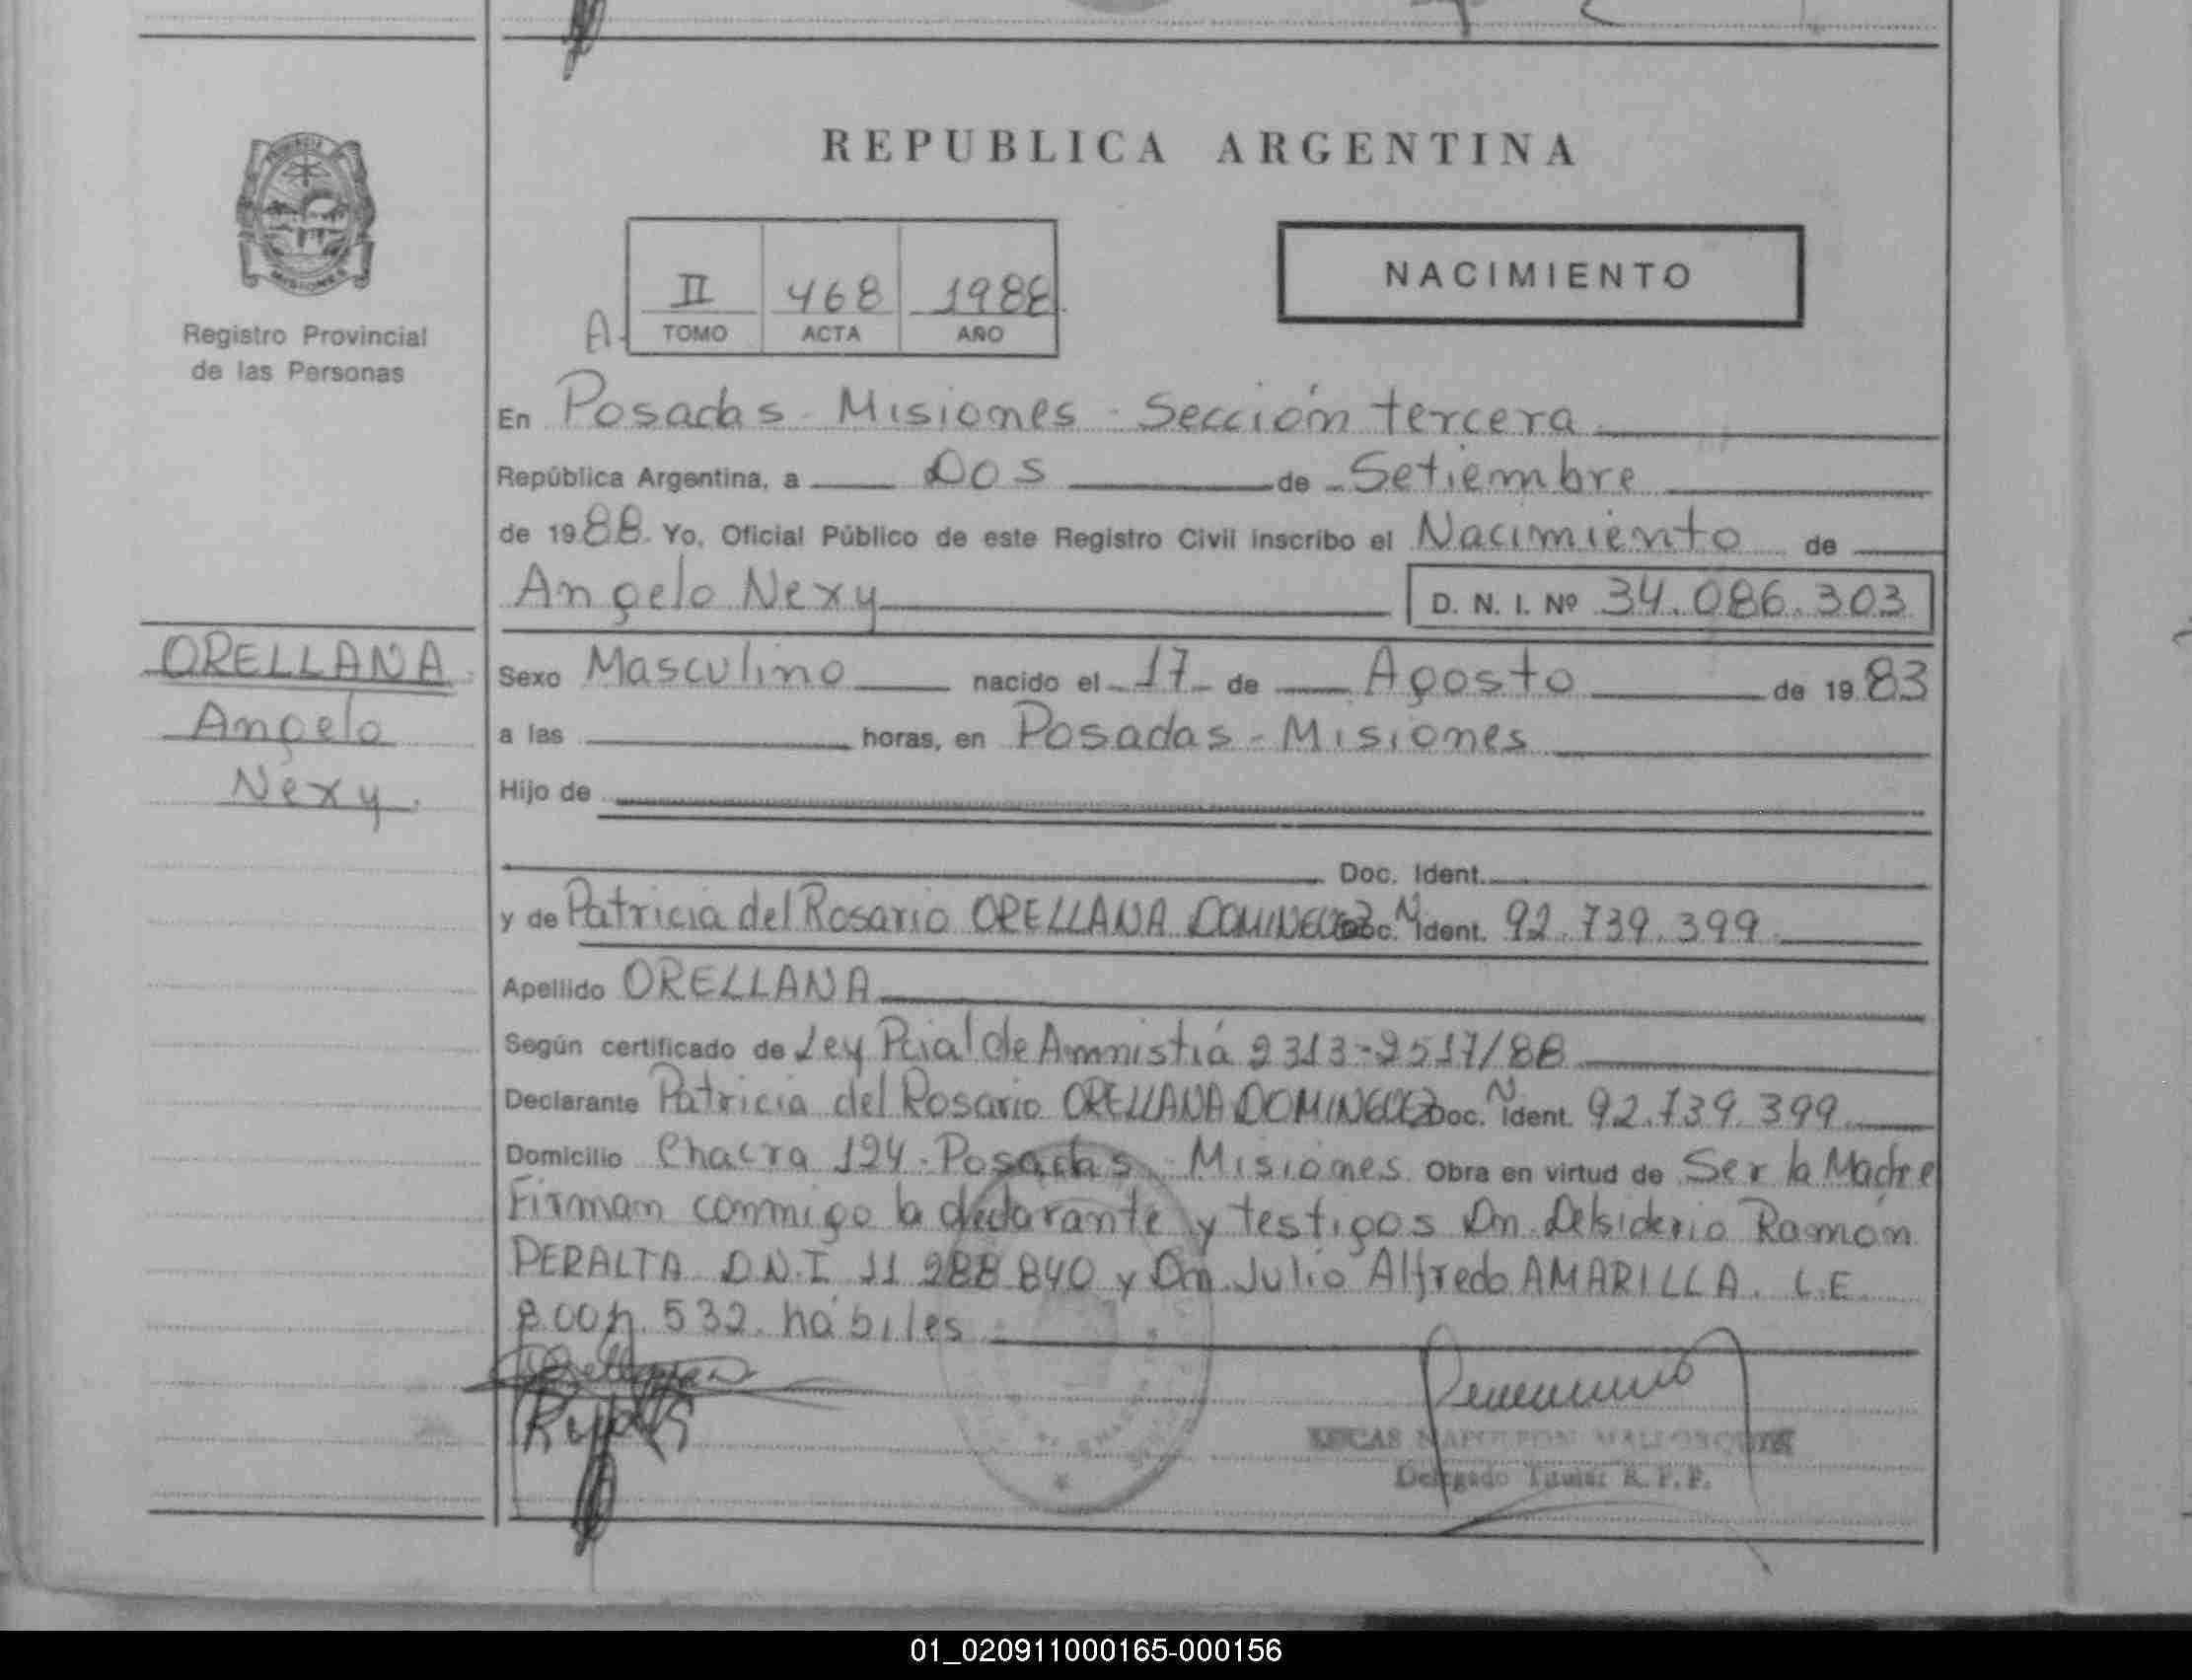 REPUBLICA ARGENTINA
NACIMIENTO
A- II 468 1988
TOMO ACTA AÑO
MISIONES
Registro Provincial
de las Personas
En Posadas - Misiones - Sección tercera
República Argentina, a Dos de Setiembre
de 1988. Yo, Oficial Público de este Registro Civil inscribo el Nacimiento de
Angelo Nexy D. N. I. Nº 34.086.303
ORELLANA
Angelo
Nexy.
Sexo Masculino nacido el 17 de Agosto de 1983
a las horas, en Posadas - Misiones
Hijo de
Doc. Ident.
y de Patricia del Rosario ORELLANA DOMINGUEZ Doc. N Ident. 92.739.399
Apellido ORELLANA
Según certificado de Ley Pcial de Amnistiá 2313-2517/88
Declarante Patricia del Rosario ORELLANA DOMINGUEZ Doc. N Ident. 92.739.399
Domicilio Chacra 124 - Posadas - Misiones Obra en virtud de Ser la Madre
Firman conmigo la declarante y testigos Dn. Delsiderio Ramón
PERALTA D.N.I 11 288 840 y Dn. Julio Alfredo AMARILLA. L.E.
532. hábiles
LUCAS NAPOLEON
Delegado Titular R.P.P.
01_020911000165-000156